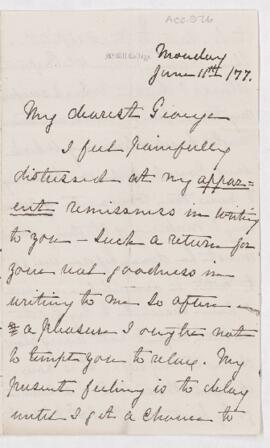 Acc.976
McGill College
Monday
June 18th/77.
My dearest George
I feel painfully
distressed at my appar=
ent remissness in writing
to you – such a return for
your real goodness in
writing to me so often –
a pleasure I ought not
to tempt you to relax. My
present feeling is to delay
until I get a chance to